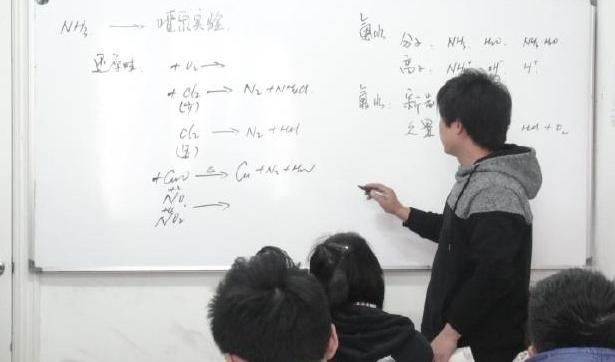 NH₃ → 喷泉实验
还原性: + O₂ →
+ Cl₂ → N₂ + NH₄Cl
(少)
Cl₂ → N₂ + HCl
+ CuO —△→ Cu + N₂ + H₂O
+2
NO
+4
NO₂ →
氨水 分子: NH₃ H₂O NH₃·H₂O
离子: NH₄⁺ OH⁻ H⁺
氯水: 新制
久置 HCl + O₂